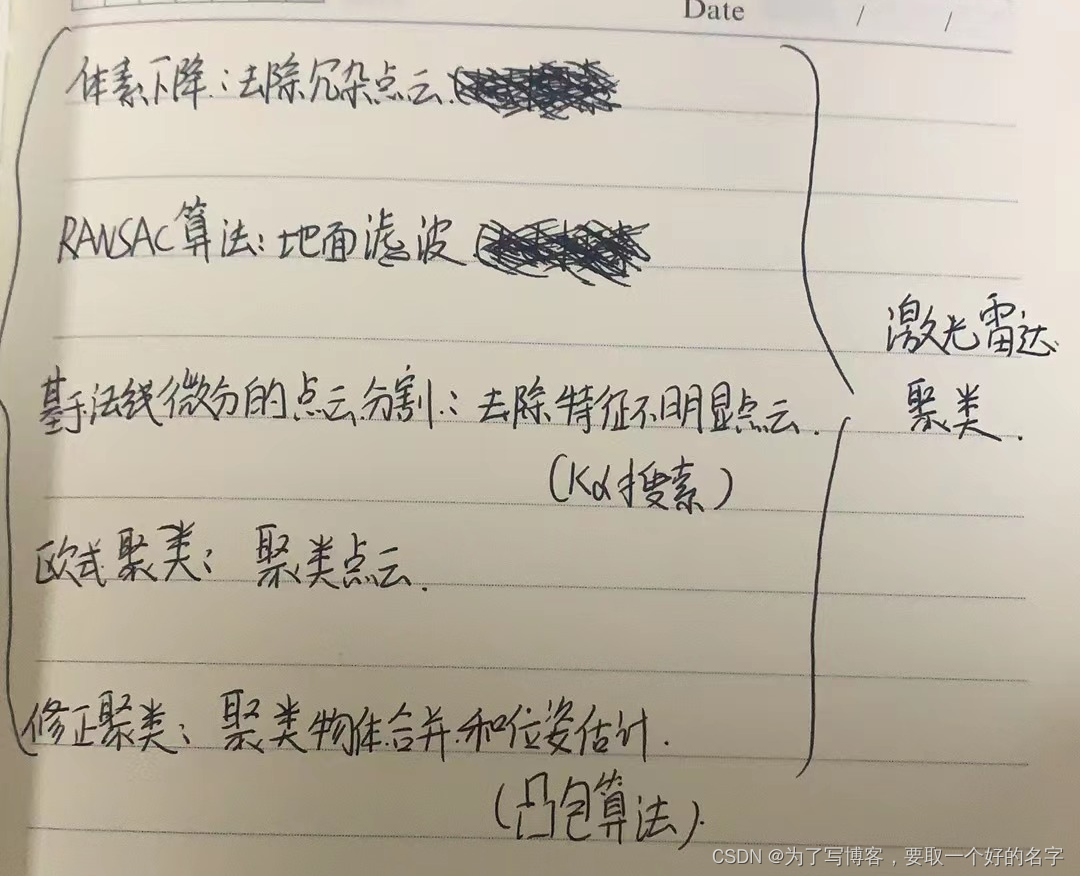 Date / /
体素下降：去除冗杂点云.
RANSAC算法：地面滤波
激光雷达
聚类.
基于法线微分的点云分割：去除特征不明显点云.
(Kd搜索)
欧式聚类：聚类点云.
修正聚类：聚类物体合并和位姿估计.
(凸包算法).
CSDN @为了写博客，要取一个好的名字